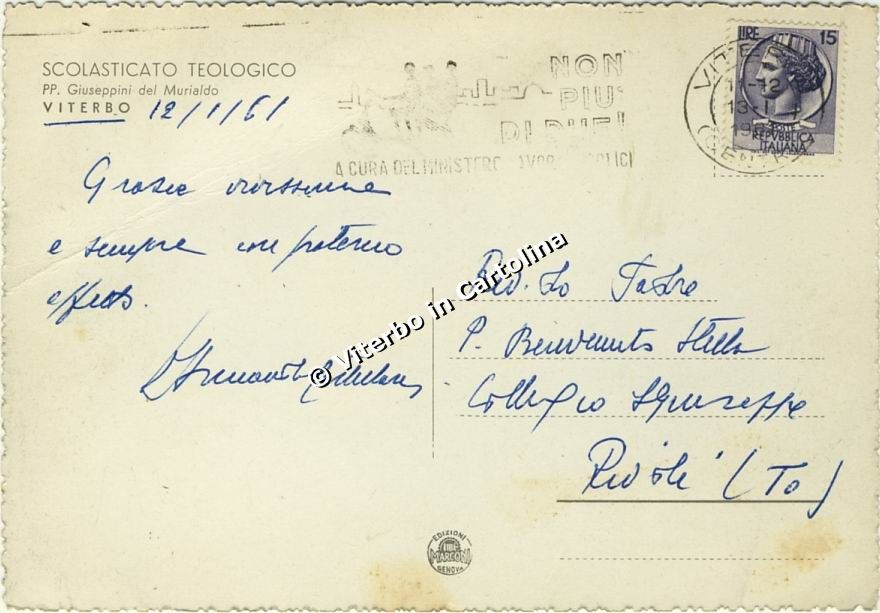 SCOLASTICATO TEOLOGICO
PP. Giuseppini del Murialdo
VITERBO 12/1/61
NON
PIU'
DI DUE!
A CURA DEL MINISTERO LAVORI PUBBLICI
VITERBO
11-12
13-1
19
CENTRO
LIRE 15
POSTE
REPVBBLICA
ITALIANA
Grazie vivissime
e sempre con fraterno
affetto.
© Viterbo in Cartolina
Rev.do Padre
P. Benvenuto Stella
Collegio S. Giuseppe
Rivoli (To)
EDIZIONI
MARCONI
GENOVA